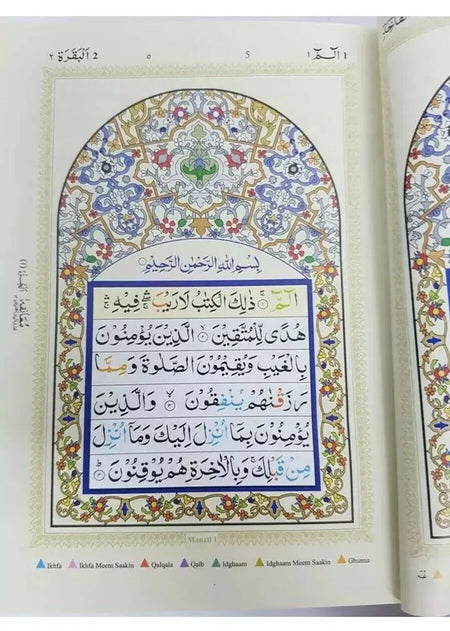 الٓمّٓ ١ 1 5 ٥ 2 اَلْبَقَرَة ٢
بِسْمِ اللّٰهِ الرَّحْمٰنِ الرَّحِيْمِ
الٓمّٓ ۚ ذٰلِكَ الْكِتٰبُ لَا رَيْبَ ۛ فِيْهِ ۛ
هُدًى لِّلْمُتَّقِيْنَ ۙ الَّذِيْنَ يُؤْمِنُوْنَ
بِالْغَيْبِ وَيُقِيْمُوْنَ الصَّلٰوةَ وَمِمَّا
رَزَقْنٰهُمْ يُنْفِقُوْنَ ۙ وَالَّذِيْنَ
يُؤْمِنُوْنَ بِمَآ اُنْزِلَ اِلَيْكَ وَمَآ اُنْزِلَ
مِنْ قَبْلِكَ ۚ وَبِالْاٰخِرَةِ هُمْ يُوْقِنُوْنَ ؕ
Manzil 1
Ikhfa Ikhfa Meem Saakin Qalqala Qalb Idghaam Idghaam Meem Saakin Ghunna